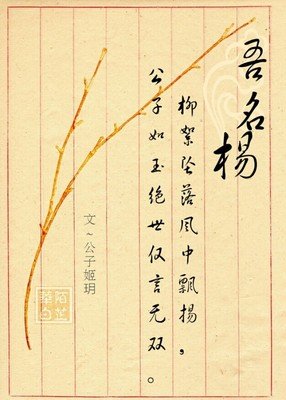 吾名杨
柳絮坠落风中飘扬，
公子如玉绝世仅言无双。
文~公子姬玥